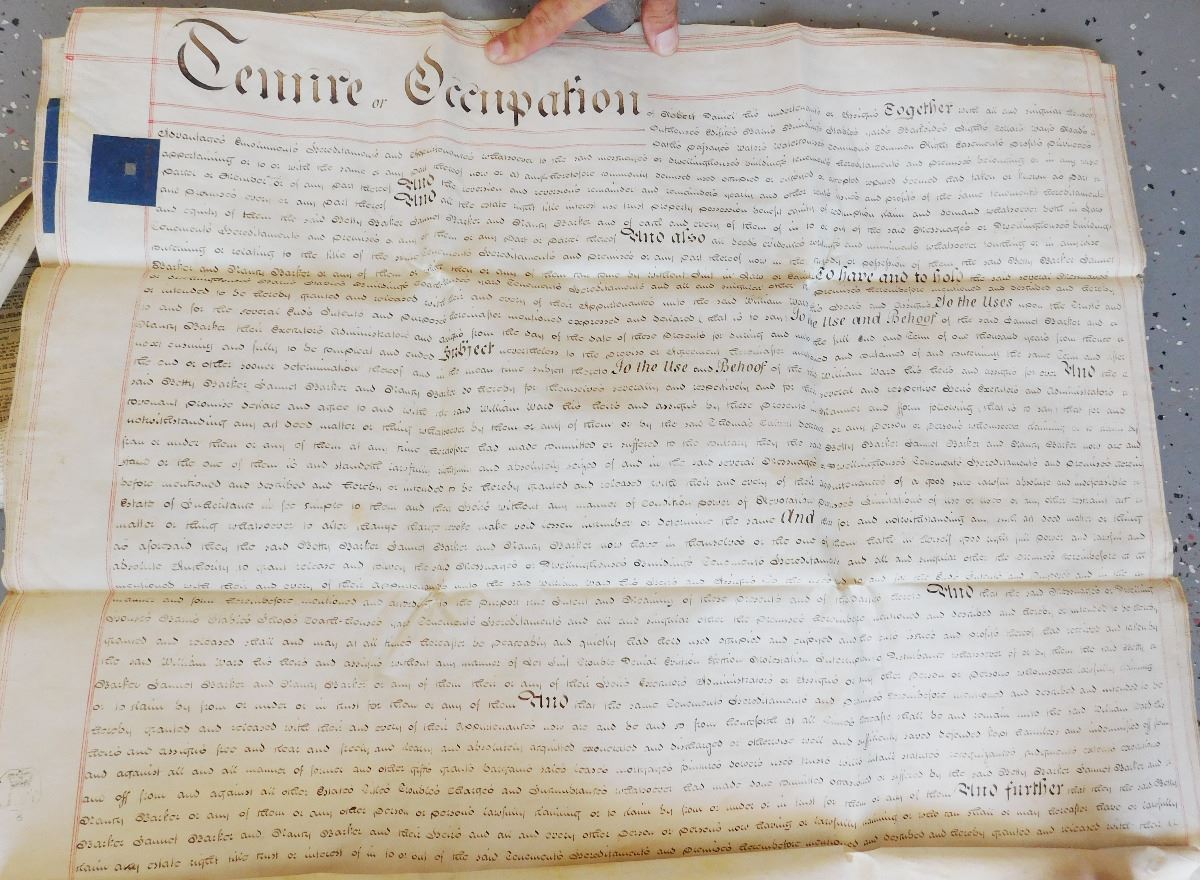 Tenure or Occupation of Robert Daniel his undertenants or Assigns Together with all and singular Houses
Outhouses Edifices Barns Buildings Stables yards Backsides Lights Ways Roads
paths passages waters watercourses commons common Right Easements profits privileges
Advantages Emoluments Hereditaments and Appurtenances whatsoever to the said messuages or dwellinghouses buildings tenements hereditaments and premises belonging or in any wise
appertaining or to or with the same or any part thereof now or at any time heretofore commonly demised used occupied or enjoyed or accepted reputed deemed had taken or known as part
parcel or Member of or of any part thereof And the reversion and reversions remainder and remainders yearly and other rents issues and profits of the same tenements hereditaments
and premises every or any part thereof And all the estate right title interest use trust property possession benefit equity of redemption claim and demand whatsoever both in Law
and equity of them the said Betty Barker Samuel Barker and Nancy Barker and of each and every of them of in to or out of the said Messuages or Dwellinghouses buildings
tenements Hereditaments and premises or any of them or any part or parcel thereof And also all deeds evidences writings and muniments whatsoever touching or in any wise
concerning or relating to the title of the same tenements Hereditaments and premises or any part thereof now in the custody or possession of them the said Betty Barker Samuel
Barker and Nancy Barker or any of them or which them or any of them can come by without Suit in Law or Equity To have and to hold the said several Messuages
or Dwellinghouses Barns Stables Buildings yard Tenements Hereditaments and all and singular other the premises hereinbefore mentioned and described and hereby
or intended to be hereby granted and released with their and every of their Appurtenances unto the said William Ward his Heirs and Assigns To the Uses upon the Trusts and
to and for the several Ends Intents and Purposes hereinafter mentioned expressed and declared that is to say To the Use and Behoof of the said Samuel Barker and
Nancy Barker their Executors Administrators and Assigns from the day of the date of these Presents for during and unto the full End and Term of one thousand years from thence
next ensuing and fully to be compleat and ended Subject nevertheless to the proviso or Agreement hereinafter and contained of and concerning the same Term and after
the end or other sooner determination thereof and in the mean time subject thereto To the Use and Behoof of the said William Ward his heirs and assigns for ever And the
said Betty Barker Samuel Barker and Nancy Barker do hereby for themselves severally and respectively and for their several and respective Heirs Executors and Administrators
covenant promise declare and agree to and with the said William Ward his heirs and assigns by these Presents in manner and form following that is to say that for and
notwithstanding any act deed matter or thing whatsoever by them or any of them or by the said Thomas or any Person or Persons whomsoever claiming or to claim by
from or under them or any of them at any time heretofore had made committed or suffered to the contrary they the said Betty Barker Samuel Barker and Nancy Barker now are and
stand or the one of them is and standeth lawfully rightfully and absolutely seized of and in the said several Messuages or Dwellinghouses Tenements Hereditaments and Premises herein
before mentioned and described and hereby or intended to be hereby granted and released with their and every of their Appurtenances of a good sure lawful absolute and indefeasible
Estate of Inheritance in fee simple to them and their Heirs without any manner of Condition power of Revocation Limitations of use or uses or any other restraint act
matter or thing whatsoever to alter change charge revoke make void lessen incumber or determine the same And that for and notwithstanding any such act deed matter or thing
as aforesaid they the said Betty Barker Samuel Barker and Nancy Barker now have in themselves or the one of them hath in herself good right full power and lawful and
absolute Authority to grant release and convey the said Messuages or Dwellinghouses Buildings Tenements Hereditaments and all and singular other the Premises hereinbefore
mentioned with their and every of their Appurtenances unto the said William Ward his Heirs and Assigns to the Uses and for the Ends Intents and Purposes and in
manner and form hereinbefore mentioned and according to the purport true Intent and Meaning of these Presents and of the parties hereto And that the said Messuages or Dwelling
Houses Barns Stables Shops yard Tenements Hereditaments and all and singular other the Premises hereinbefore mentioned and described and hereby or intended to be hereby
granted and released shall and may at all times hereafter be peaceably and quietly had held used occupied and enjoyed and the rents issues and profits thereof had received and taken by
the said William Ward his heirs and assigns without any manner of Let Suit Trouble Denial Eviction Ejection Molestation Interruption Disturbance whatsoever of or by them the said Betty
Barker Samuel Barker and Nancy Barker or any of them them or any of their Heirs Executors Administrators or Assigns or any other person or Persons whomsoever lawfully claiming
or to claim by from or under or in trust for them or any of them And that the same Tenements Hereditaments and premises hereinbefore mentioned and described and intended to be
hereby granted and released with their and every of their Appurtenances now are and be and so from henceforth at all times hereafter shall be and remain unto the said William Ward his
heirs and assigns free and clear and freely and clearly and absolutely acquitted exonerated and discharged or otherwise well and sufficiently saved defended kept harmless and indemnified of from
and against all and all manner of former and other gifts grants bargains sales leases mortgages jointures dowers uses trusts wills intails statutes recognizances judgments extents executions
and off from and against all other Estates Titles Troubles Charges and Incumbrances whatsoever had made done committed occasioned or suffered by the said Betty Barker Samuel Barker and
Nancy Barker or any of them or any other person or persons lawfully claiming or to claim by from or under or in trust for them or any of them And further that they the said Betty
Barker Samuel Barker and Nancy Barker and their Heirs and all and every other Person or Persons now having or lawfully claiming or who can shall or may hereafter have or lawfully
claim any estate right title trust or interest of in to or out of the said Tenements Hereditaments and Premises hereinbefore mentioned and described and hereby granted and released with their